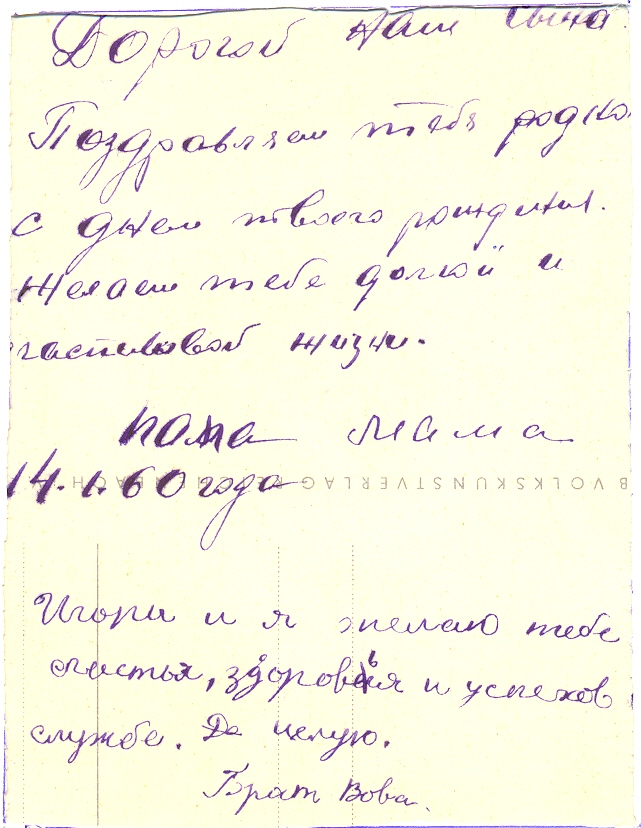 Дорогой наш сына
Поздравляем тебя родно
с днем твоего рождения.
Желаем тебе долгой и
счастливой жизни.
папа мама
14.1.60 года
B VOLKSKUNSTVERLAG REICHENBACH
Игорь и я желаю тебе
счастья, здоровья и успехов
службе. Целую.
Брат Вова.